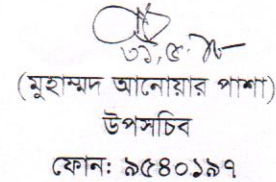 (মুহাম্মদ আনোয়ার পাশা)
উপসচিব
ফোন: ৯৫৪০১৯৭